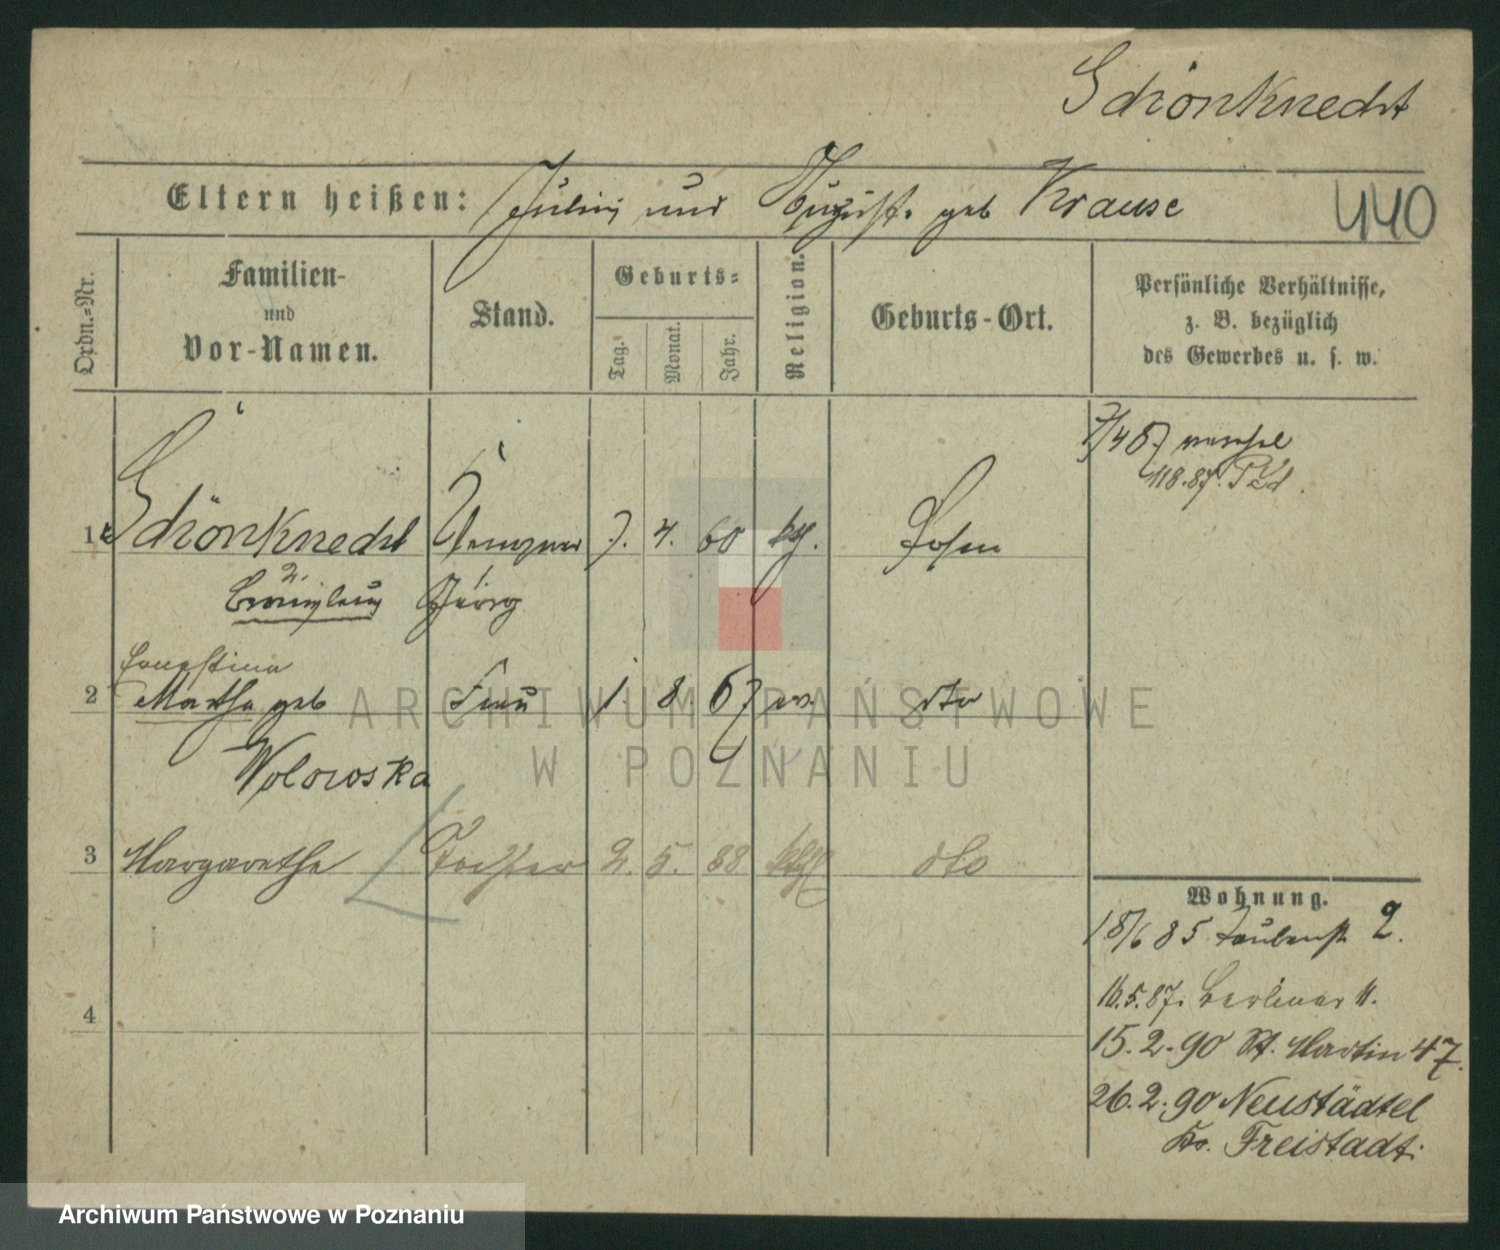 Schönknecht
Eltern heißen: Julius und August. geb Krause
440
Ordn.=Nr.
Familien-
und
Vor-Namen.
Stand.
Geburts=
Tag.
Monat.
Jahr.
Religion.
Geburts-Ort.
Persönliche Verhältnisse,
z. B. bezüglich
des Gewerbes u. s. w.
7/4 87
118.87.
1 Schönknecht 7. 4. 60 ktl. Posen
Bronislaus Georg
Ernestine
2 Martha geb Frau 1. 8. 67 ev. dto
Woloroska
3 Margarethe Tochter 2. 5. 88 kthl dto
4
Wohnung.
18/6 85 Taubenst 2.
16.5.87. Berliner 11.
15.2.90 St. Martin 47.
26.2.90 Neustädtel
Kr. Freistadt.
ARCHIWUM PAŃSTWOWE
W POZNANIU
Archiwum Państwowe w Poznaniu